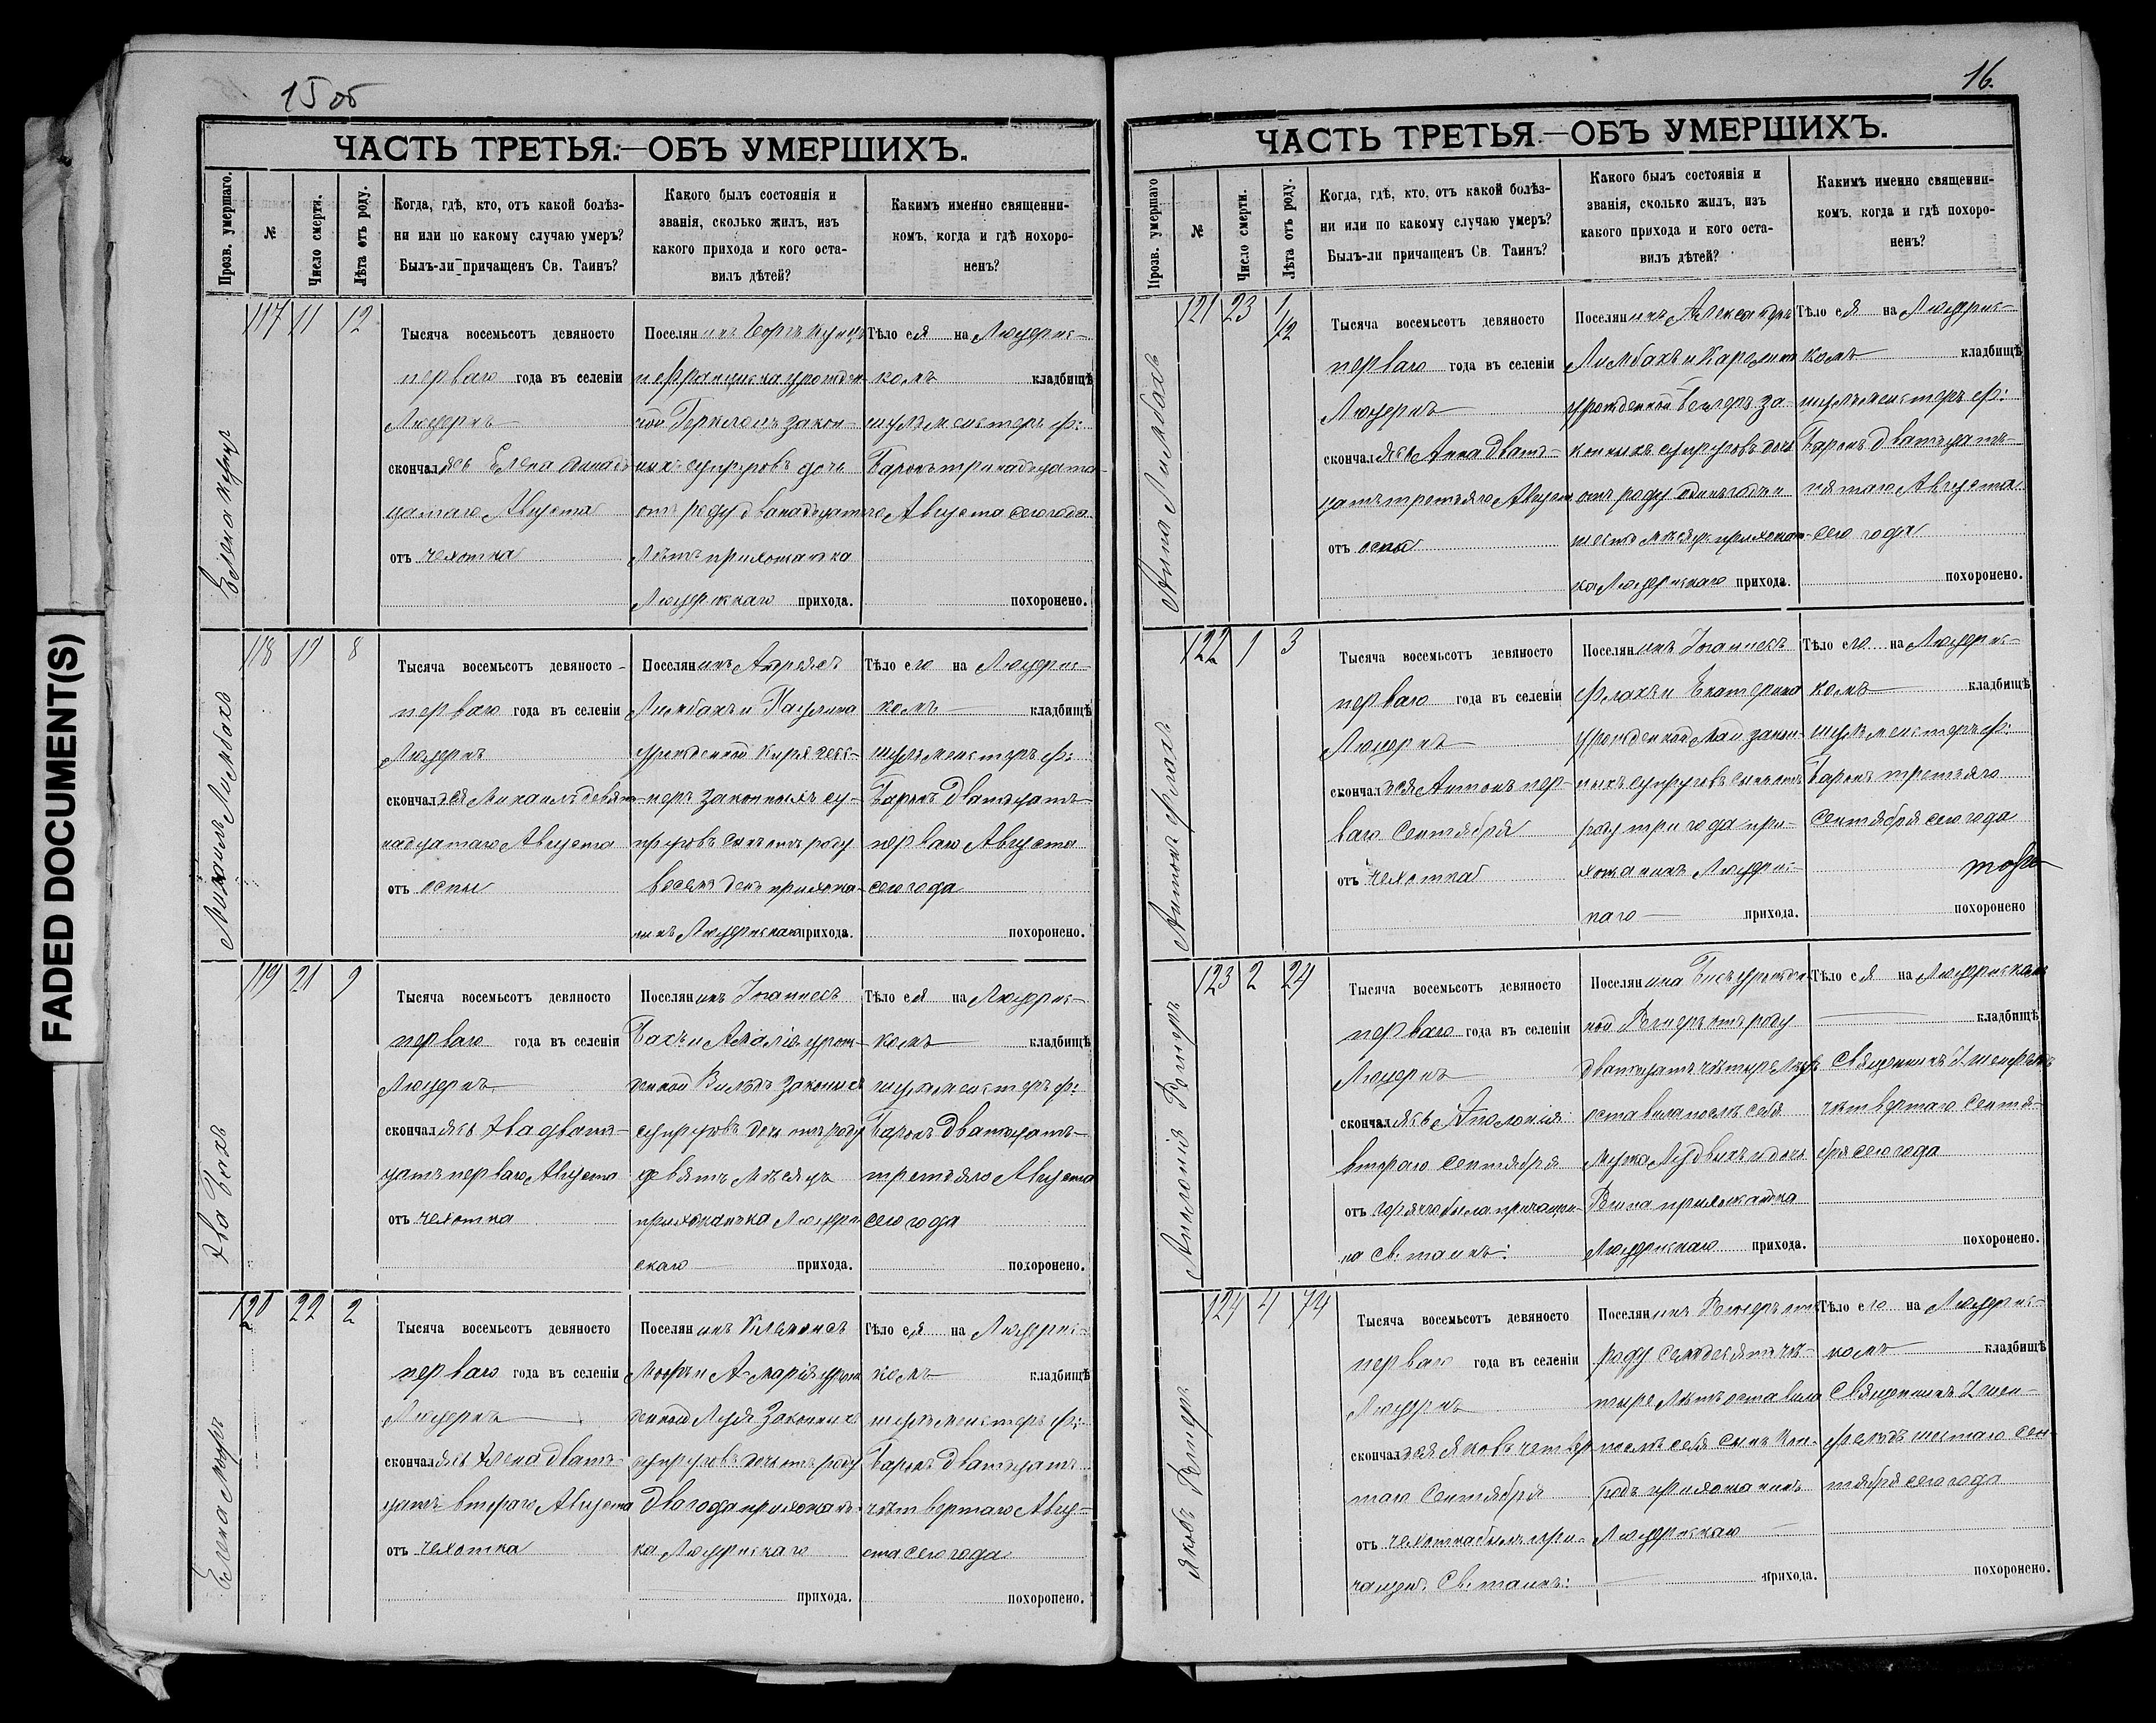 15 об
ЧАСТЬ ТРЕТЬЯ.—ОБЪ УМЕРШИХЪ.
Прозв. умершаго.
№
Число смерти.
Лѣта отъ роду.
Когда, гдѣ, кто, отъ какой болѣз-
ни или по какому случаю умеръ?
Былъ-ли причащенъ Св. Таинъ?
Какого былъ состоянія и
званія, сколько жилъ, изъ
какого прихода и кого оста-
вилъ дѣтей?
Какимъ именно священни-
комъ, когда и гдѣ похоро-
ненъ?
Елена Кунцъ
117 11 12
Тысяча восемьсотъ девяносто
перваго года въ селеніи
Люцернъ
скончалась Елена одинад-
цатаго Августа
отъ чехотка
Поселянинъ Георгъ Кунцъ
и Франциска урожден-
ной закон-
ныхъ супруговъ дочь
отъ роду двенадцать
лѣтъ прихожанка
Люцернскаго прихода.
Тѣло ея на Люцернс-
комъ кладбищѣ
шульмейстеръ Ф:
Баронъ тринадцата-
го Августа сего года
похоронено.
Михаилъ Лимбахъ
118 19 8
Тысяча восемьсотъ девяносто
перваго года въ селеніи
Люцернъ
скончался Михаилъ девят-
надцатаго Августа
отъ оспы
Поселянинъ Андреасъ
Лимбахъ и Паулина
урожденной
законныхъ су-
пруговъ сынъ отъ роду
восемь денъ прихожа-
нинъ Люцернскаго прихода.
Тѣло его на Люцернс-
комъ кладбищѣ
шульмейстеръ Ф:
Баронъ дватцать
перваго Августа
сего года
похоронено.
Эва Бахъ
119 21 9
Тысяча восемьсотъ девяносто
перваго года въ селеніи
Люцернъ
скончалась Эва дват-
цать перваго Августа
отъ чехотка
Поселянинъ Іоаннесъ
Бахъ и Амалія урож-
денной Вильдъ законныхъ
супруговъ дочь отъ роду
девять мѣсяцъ
прихожанка Люцерн-
скаго прихода.
Тѣло ея на Люцернс-
комъ кладбищѣ
шульмейстеръ Ф:
Баронъ дватцать
третьяго Августа
сего года
похоронено.
Елена Мооръ
120 22 2
Тысяча восемьсотъ девяносто
перваго года въ селеніи
Люцернъ
скончалась Елена дват-
цать втораго Августа
отъ чехотка
Поселянинъ
Мооръ и А-Марія урож-
денной законныхъ
супруговъ дочь отъ роду
два года прихожан-
ка Люцернскаго
прихода.
Тѣло ея на Люцернс-
комъ кладбищѣ
шульмейстеръ Ф:
Баронъ дватцать
четвертаго Авгу-
ста сего года
похоронено.
16.
ЧАСТЬ ТРЕТЬЯ.—ОБЪ УМЕРШИХЪ.
Прозв. умершаго
№
Число смерти.
Лѣта отъ роду.
Когда, гдѣ, кто, отъ какой болѣз-
ни или по какому случаю умеръ?
Былъ-ли причащенъ Св. Таинъ?
Какого былъ состоянія и
званія, сколько жилъ, изъ
какого прихода и кого оста-
вилъ дѣтей?
Какимъ именно священни-
комъ, когда и гдѣ похоро-
ненъ?
Анна Лимбахъ
121 23 1/12
Тысяча восемьсотъ девяносто
перваго года въ селеніи
Люцернъ
скончалась Анна дват-
цать третьяго Августа
отъ оспы
Поселянинъ Александръ
Лимбахъ и Каролина
урожденной за-
конныхъ супруговъ дочь
отъ роду одинъ годъ и
шесть мѣсяцъ прихожан-
ка Люцернскаго прихода.
Тѣло ея на Люцернс-
комъ кладбищѣ
шульмейстеръ Ф:
Баронъ дватцать
пятаго Августа
сего года
похоронено.
Антонъ Флахъ
122 1 3
Тысяча восемьсотъ девяносто
перваго года въ селеніи
Люцернъ
скончался Антонъ пер-
ваго Сентября
отъ чехотка
Поселянинъ Іоаннесъ
Флахъ и Екатерина
урожденной Май закон-
ныхъ супруговъ сынъ отъ
роду три года при-
хожанинъ Люцернс-
каго прихода.
Тѣло его на Люцернс-
комъ кладбищѣ
шульмейстеръ Ф:
Баронъ третьяго
Сентября сего года
тоже
похоронено
Аполонія Венеръ
123 2 24
Тысяча восемьсотъ девяносто
перваго года въ селеніи
Люцернъ
скончалась Аполонія
втораго Сентября
отъ горячо была причаще-
на Св. таинъ:
Поселянина урожден-
ной Венеръ отъ роду
дватцать четыре лѣтъ
оставила послѣ себя
мужа Лудвихъ и дочь
прихожанка
Люцернскаго прихода.
Тѣло ея на Люцернскомъ
кладбищѣ
Священникъ І. Шенфельдъ
четвертаго Сентя-
бря сего года
похоронено.
Яковъ Венеръ
124 4 74
Тысяча восемьсотъ девяносто
перваго года въ селеніи
Люцернъ
скончался Яковъ четвер-
таго Сентября
отъ чехотка былъ при-
чащен. Св. таинъ:
Поселянинъ Венеръ отъ
роду семдесять че-
тыре лѣтъ оставила
послѣ себя сынъ Кон-
радъ прихожанинъ
Люцернскаго
прихода.
Тѣло его на Люцернс-
комъ кладбищѣ
Священникъ І Шен-
фельдъ шестаго Сен-
тября сего года
похоронено.
FADED DOCUMENT(S)